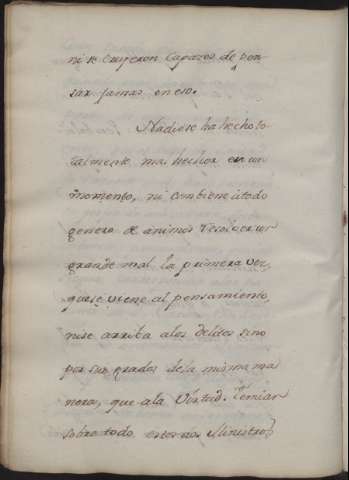 ni se creyeron Capazes de pen
sar jamas en eso.
Nadie se ha hecho to
talmente mal hechor en un
momento, ni combiene átodo
genero de animos resolver un
grande mal la primera vez,
que se viene al pensamiento,
ni se arriba alos delitos sino
por sus grados dela misma ma
nera, que ala Virtud. Temian
sobre todo estos dos Ministros